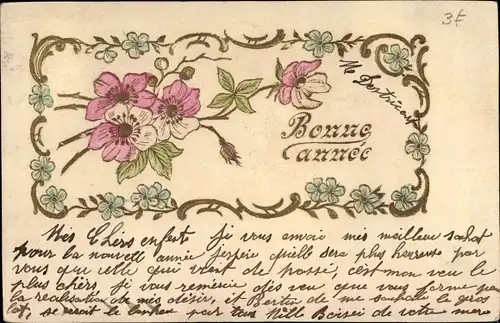 3F
Bonne
année
Mes Chers enfent je vous envoie mes meilleur souhat
pour la nouvell année j'espère quelle sera plus heureuse par
vous que celle qui vient de passé, c'est mon veu le
plus chers, je vous remercie des veu que vous formé par
la realisation de mes désir, et Berthe de me souhaité le gros
lot, se serait le bonheur pour tous Mille Baisei de votre mere